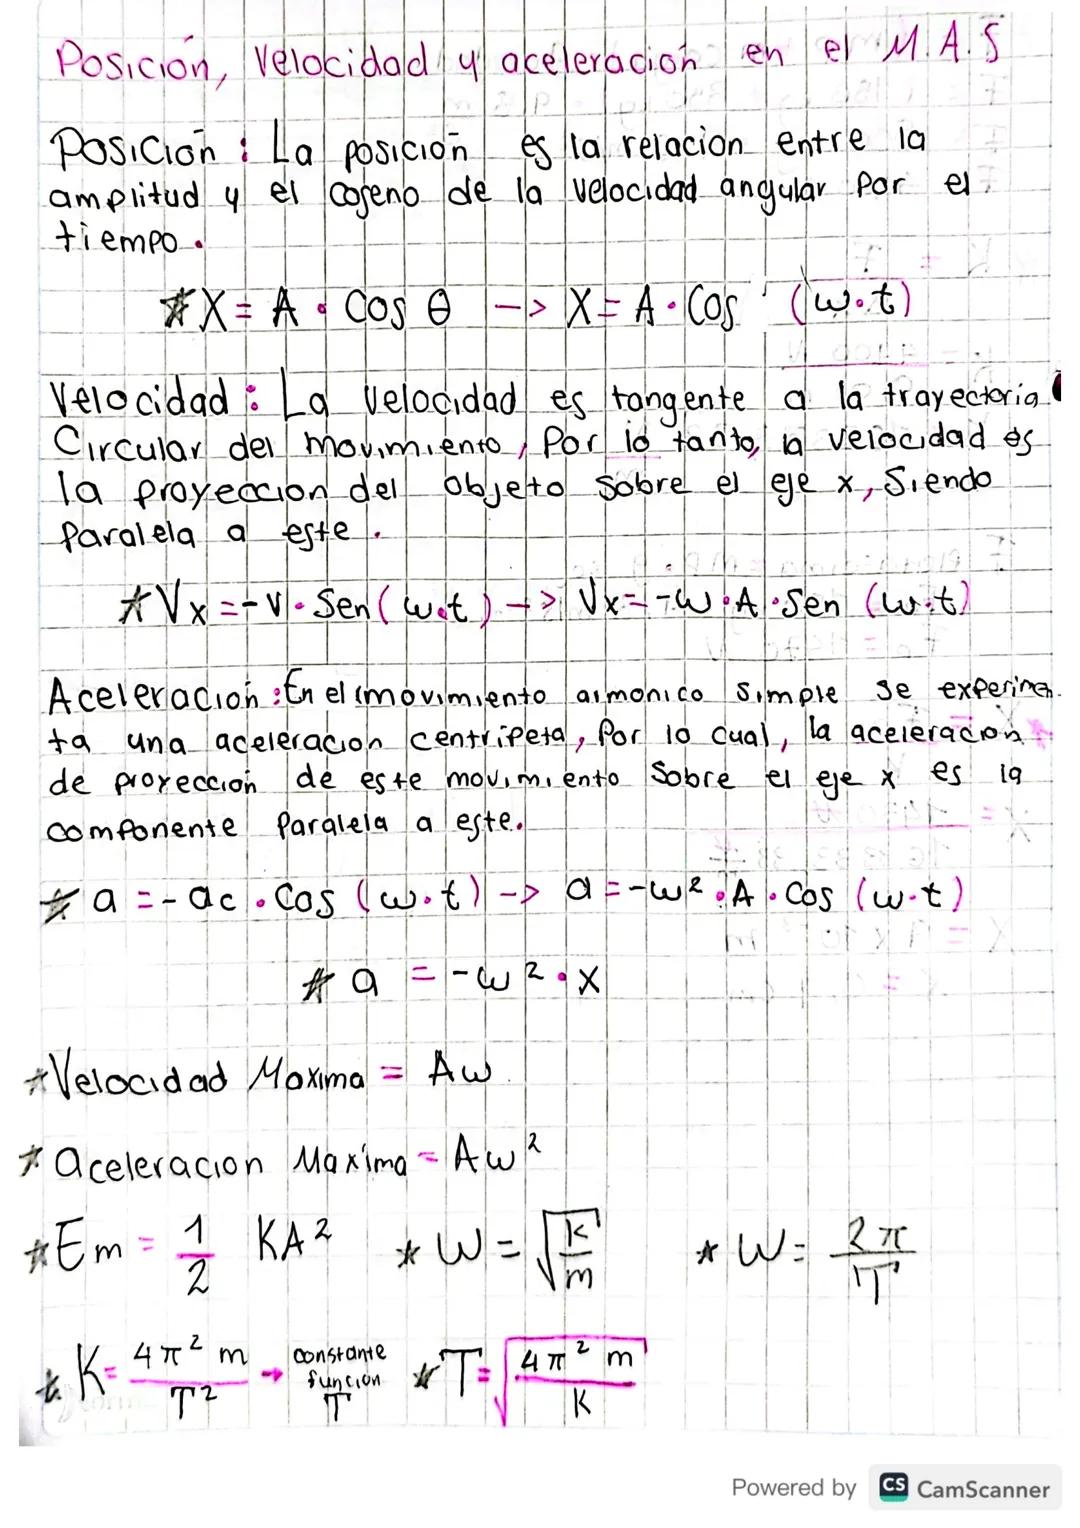 Posición, Velocidad y aceleración en el M.A.S
Posición: La posición es la relacion entre la
amplitud y el coseno de la velocidad angular por el
tiempo.
*X = A · Cos θ -> X = A · Cos (w·t)
Velocidad: La velocidad es tangente a la trayectoria
Circular del movimiento, Por lo tanto, la velocidad es
la proyeccion del objeto sobre el eje x, Siendo
Paralela a este.
*Vx = -V · Sen (w·t) -> Vx = -w · A · Sen (w·t)
Aceleración: En el movimiento armonico simple se experimen
ta una aceleracion centripeta, Por lo cual, la aceleracion
de proyección de este movimiento sobre el eje x es la
componente Paralela a este.
* a = - ac · Cos (w·t) -> a = -w² · A · Cos (w·t)
* a = -w² · x
*Velocidad Maxima = Aw
*aceleracion Maxima = Aw²
*Em = 1/2 KA² *W = √(K/m) *W = 2π/T
*K = 4π² m/T² → constante función T *T = √(4π² m/K)
Powered by CS CamScanner